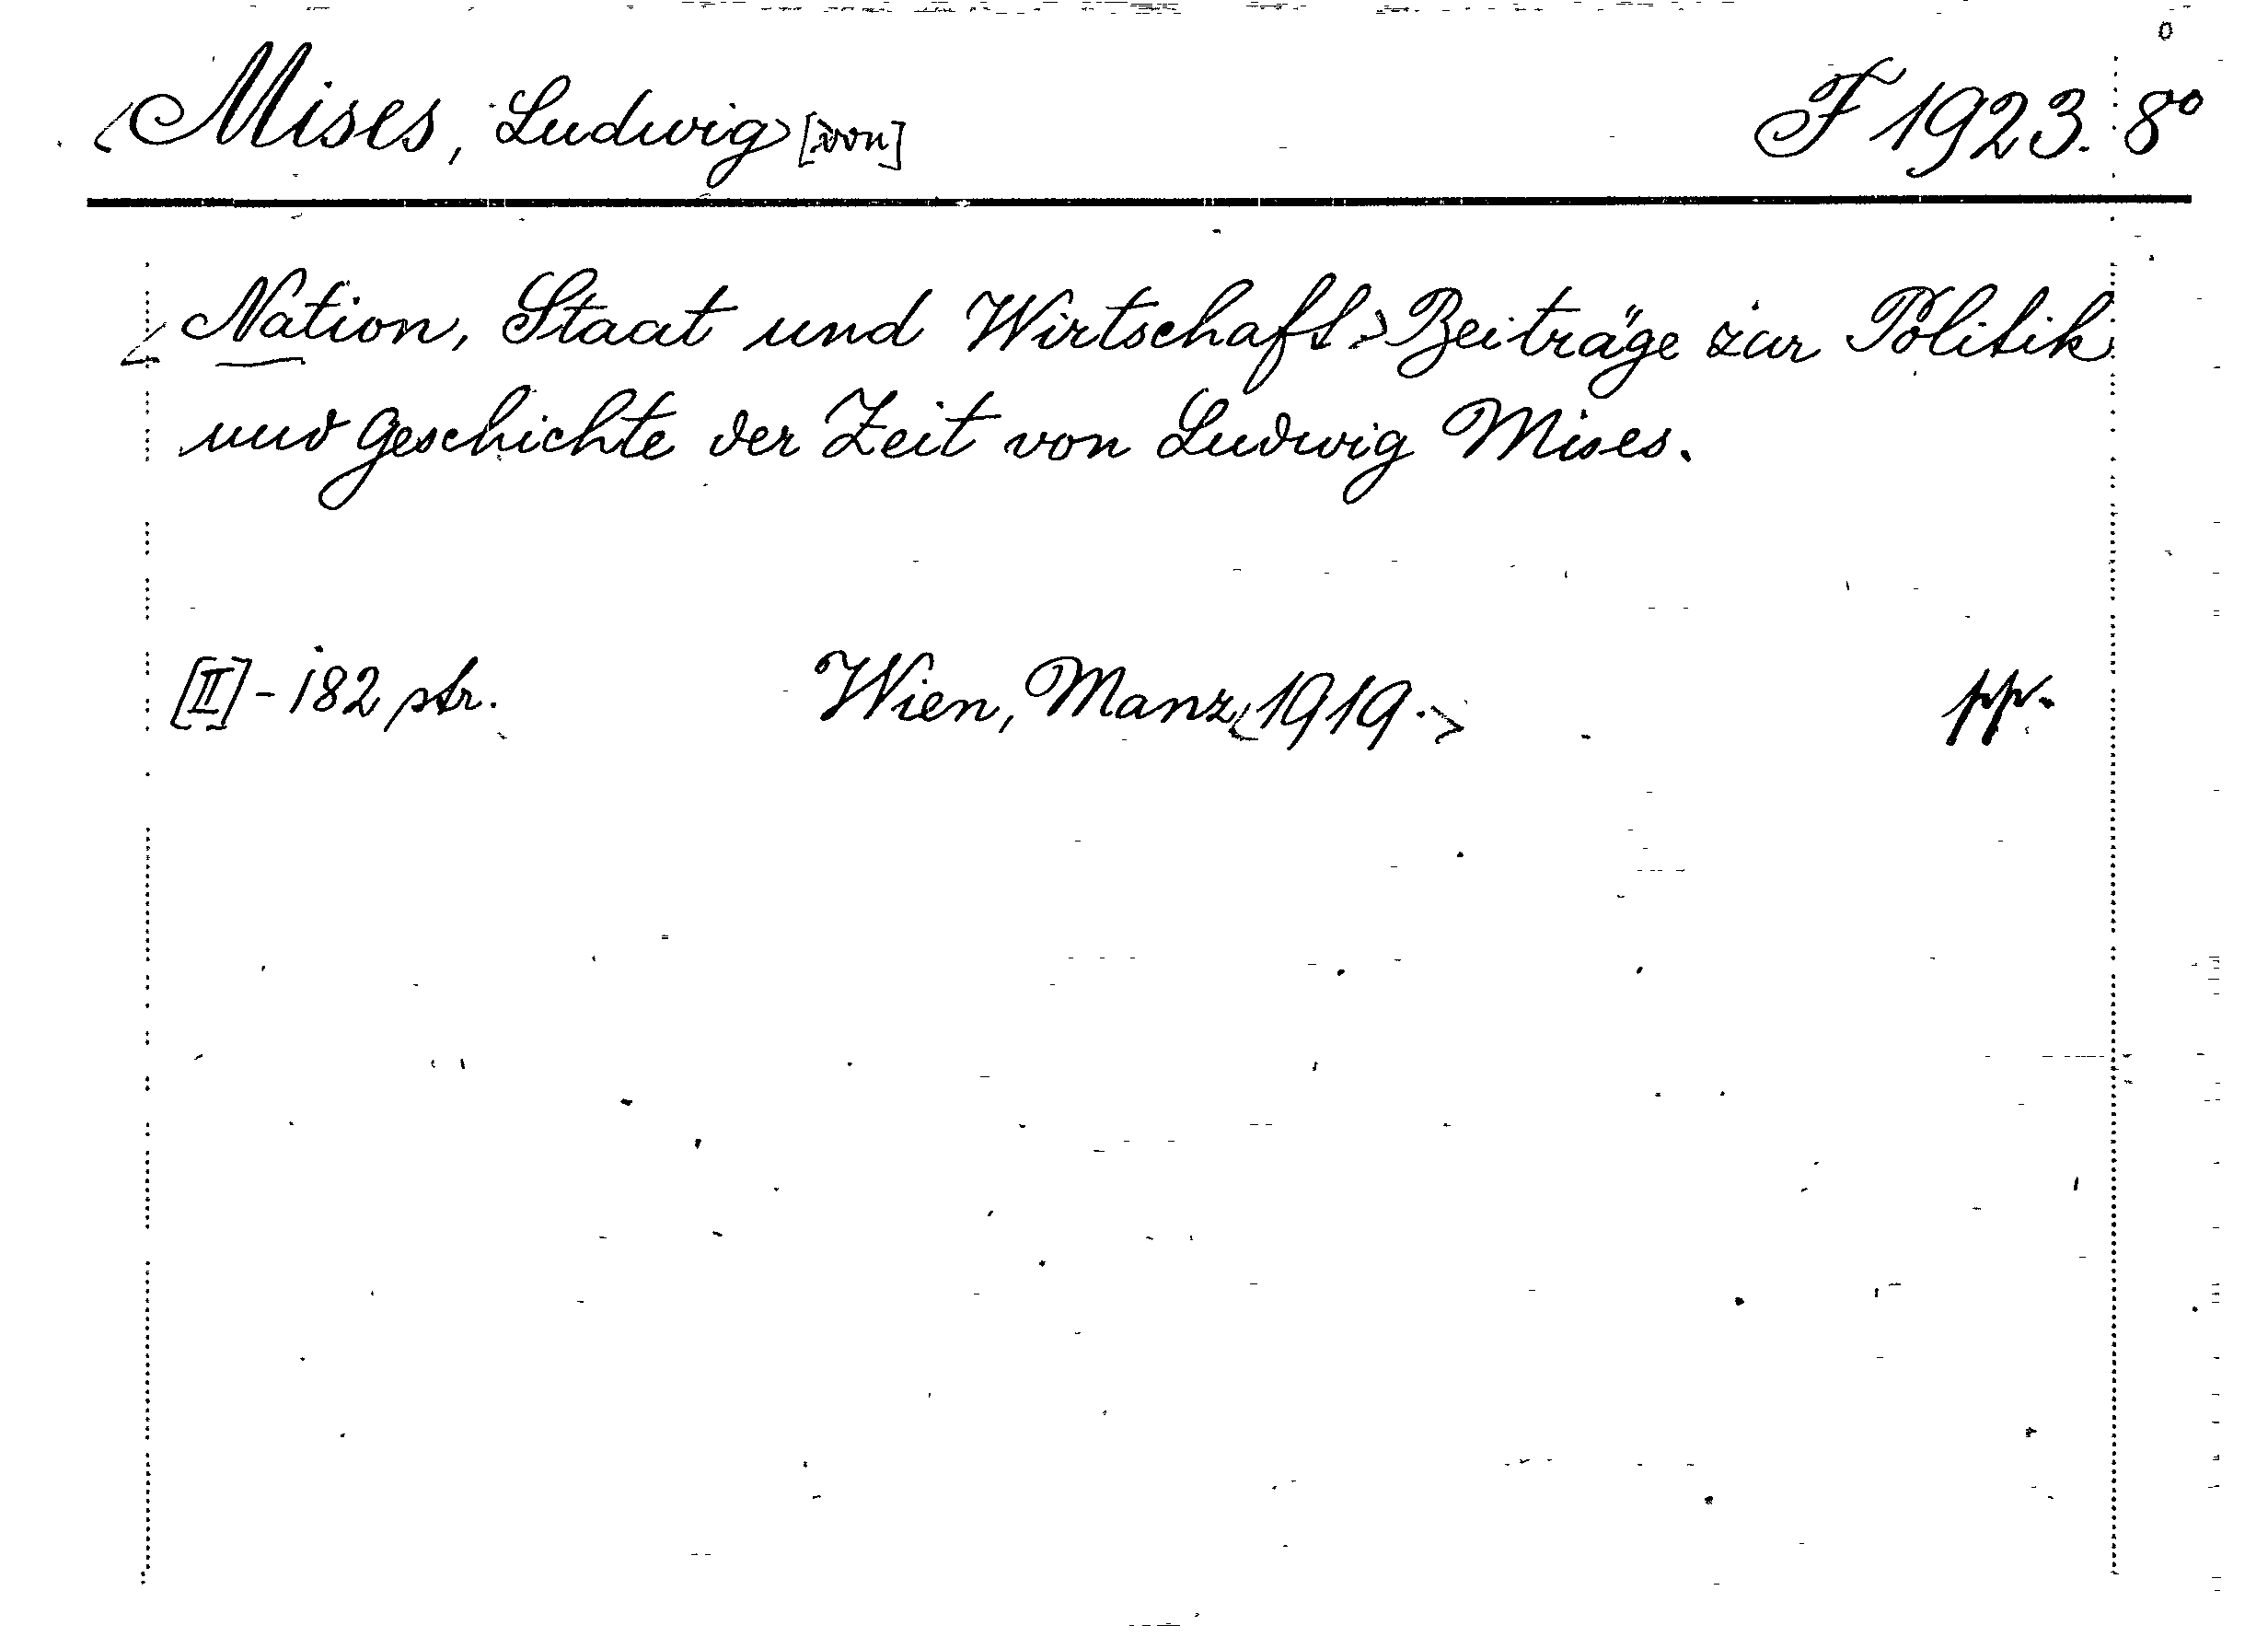 <Mises, Ludwig> [von] F 1923. 8°
<Nation, Staat und Wirtschaft.> Beiträge zur Politik
und Geschichte der Zeit von Ludwig Mises.
[II] - 182 str. Wien, Manz <1919.> pp.